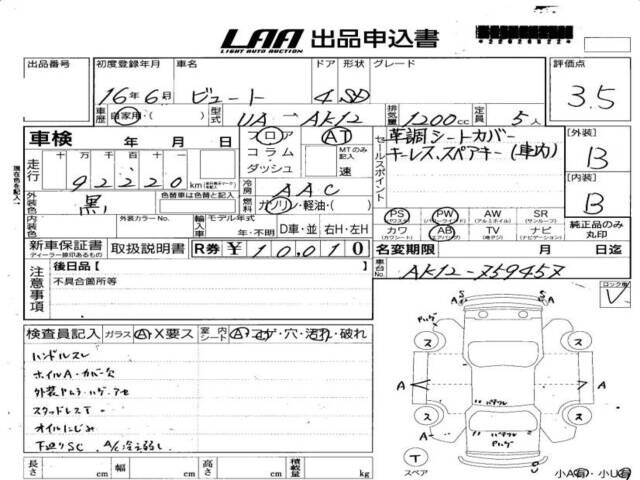 LAA 出品申込書
LIGHT AUTO AUCTION
出品番号 初度登録年月 車名 ドア 形状 グレード 評価点
16年6月 ビュート 4 SD 3.5
車歴 自家用・( ) 型式 UA-AK12 排気量 1200cc 定員 5人
車検 年 月 日 フロア AT
コラム・ MTのみ記入
ダッシュ 速
セールスポイント 革調シートカバー
キーレス、スペアキー(車内)
[外装] B
走行 十 万 千 百 十
92220km
冷房 AAC
[内装] B
外装色 黒 色替車は色替と記入 燃料 ガソリン・軽油・( )
内装色 外装カラーNo. 輸入車 モデル年式 年・不明 D車・並 右H・左H
PS PW AW SR
(パワステ) (パワーウインド) (アルミホイル) (サンルーフ)
カワ AB TV ナビ
(カワシート) (エアバック) (地デジ) (ナビゲーション)
純正品のみ丸印
新車保証書 取扱説明書 R券 ¥10,010 名変期限 月 日迄
ディーラー捺印あるもの
注意事項 後日品[ ]
不具合箇所等
車台No. AK12-
検査員記入 ガラス A・X要ス 室内シート A・コゲ・穴・汚れ・破れ
ハンドルスレ
ホイルA・カバー欠
外装ヤムラ・ハゲ・アセ
スタッドレスT
オイルにじみ
下廻りSC A/C冷え弱し
長さ cm 幅 cm 高さ cm 積載量 kg
S
ス ス
A A
バケツル
ス ス
A
T
スペア
U
小A有・小U有